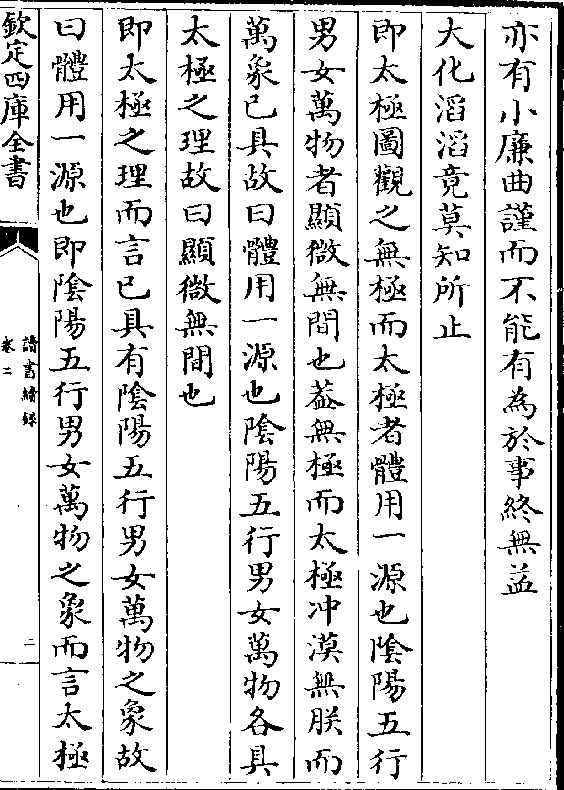 亦有小廉曲謹而不能有為於事終無益
大化滔滔竟莫知所止
即太極圖觀之無極而太極者體用一源也陰陽五行
男女萬物者顯微無間也葢無極而太極沖漠無朕而
萬象已具故曰體用一源也陰陽五行男女萬物各具
太極之理故曰顯微無間也
即太極之理而言已具有陰陽五行男女萬物之象故
曰體用一源也即陰陽五行男女萬物之象而言太極
欽定四庫全書
讀書續錄
卷二
二